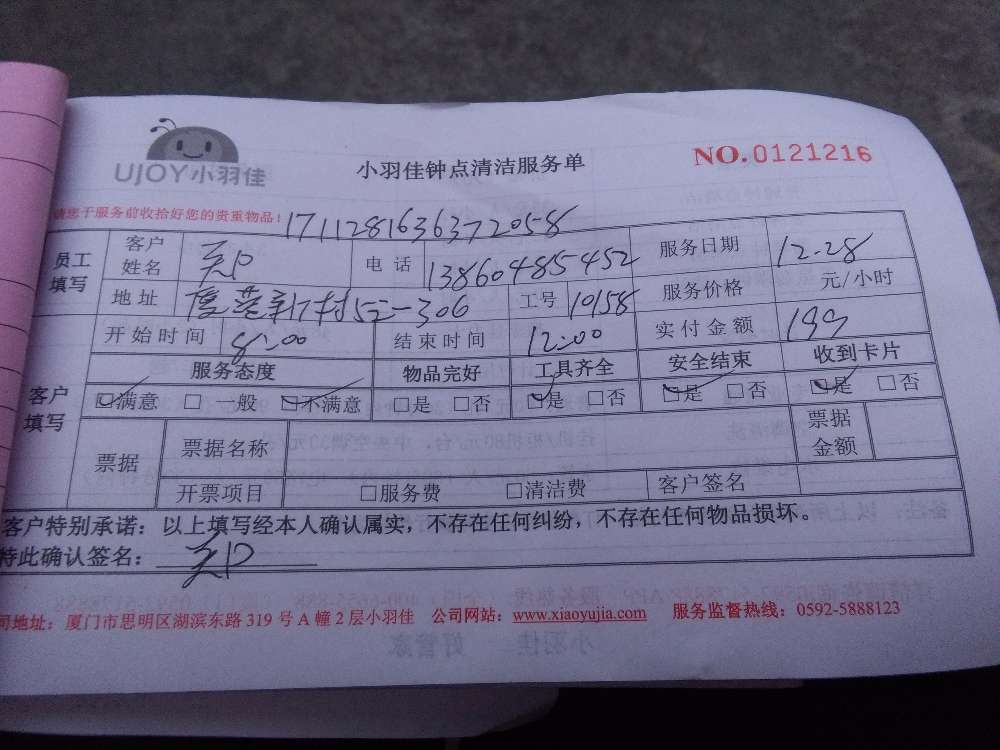 UJOY小羽佳
小羽佳钟点清洁服务单
NO.0121216
请您于服务前收拾好您的贵重物品!
171128163637 2058
员工填写 客户姓名 电话 13860485452 服务日期 12-28
地址 306 工号 10158 服务价格 元/小时
客户填写 开始时间 8:00 结束时间 12:00 实付金额 199
服务态度 物品完好 工具齐全 安全结束 收到卡片
☑满意 □ 一般 ☑不满意 □是 □否 ☑是 □否 ☑是 □否 ☑是 □否
票据 票据名称 票据金额
开票项目 □服务费 □清洁费 客户签名
客户特别承诺：以上填写经本人确认属实，不存在任何纠纷，不存在任何物品损坏。
特此确认签名：
司地址：厦门市思明区湖滨东路 319 号 A 幢 2 层小羽佳 公司网站：www.xiaoyujia.com 服务监督热线：0592-5888123